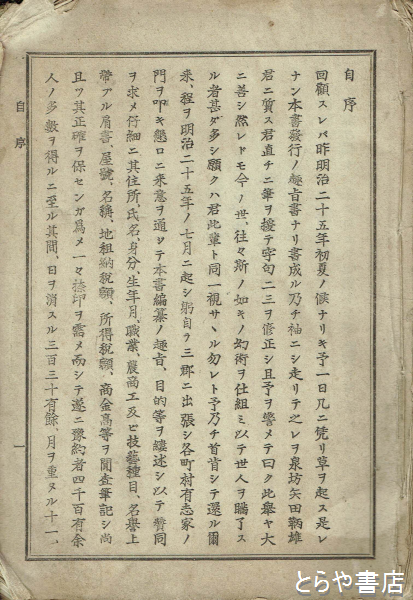 自序
回顧スレバ昨明治二十五年初夏ノ候ナリキ予一日几ニ凭リ草ヲ起ス是レ
ナン本書發行ノ趣旨書ナリ書成ル乃チ袖ニシ走リテ之レヲ泉坊矢田鞆雄
君ニ質ス君直チニ筆ヲ援テ字句二三ヲ修正シ且予ヲ警メテ曰ク此擧ヤ大
ニ善シ然レドモ今ノ世、往々斯ノ如キノ幻術ヲ仕組ミ以テ世人ヲ瞞了ス
ル者甚ダ多シ願クハ君此輩ト同一視サヽル勿レト予乃チ首肯シテ還ル爾
來、程ヲ明治二十五年ノ七月ニ起シ躬自ラ三郡ニ出張シ各町村有志家ノ
門ヲ叩キ懇ロニ來意ヲ通シテ本書編纂ノ趣旨、目的等ヲ縷述シ以テ贊同
ヲ求メ仔細ニ其住所、氏名、身分、生年月、職業、農商工及ビ技藝種目、名譽上
帶ブル肩書、屋號、名稱、地租納稅額、所得稅額、商金高等ヲ聞查筆記シ尚
且ツ其正確ヲ保センガ爲メ一々捺印ヲ需メ而シテ遂ニ豫約者四千百有余
人ノ多數ヲ得ルニ至ル其間、日ヲ消スル三百三十有餘、月ヲ重ヌル十一、
自序
一
とらや書店